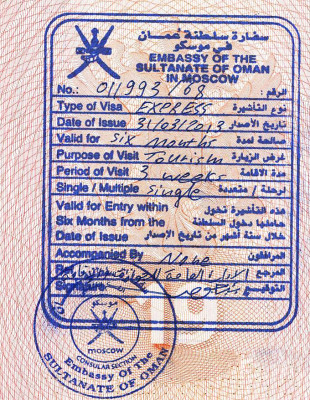 سفارة سلطنة عمان
في موسكو
EMBASSY OF THE
SULTANATE OF OMAN
IN MOSCOW
No.: 011993/68 الرقم:
Type of Visa EXPRESS نوع التأشيرة
Date of Issue 31/03/2013 تاريخ الأصدار
Valid for six months صالحة لمدة
Purpose of Visit Tourism غرض الزيارة
Period of Visit 3 weeks مدة الاقامة
Single / Multiple single لرحلة / متعددة
Valid for Entry within هذه التأشيرة تخول
Six Months from the حاملها دخول السلطنة
Date of Issue خلال ستة أشهر من تاريخ الأصدار
Accompanied By None المرافقون
المرجع
التوقيع
19
موسكو
moscow
CONSULAR SECTION
Embassy Of The
SULTANATE OF OMAN